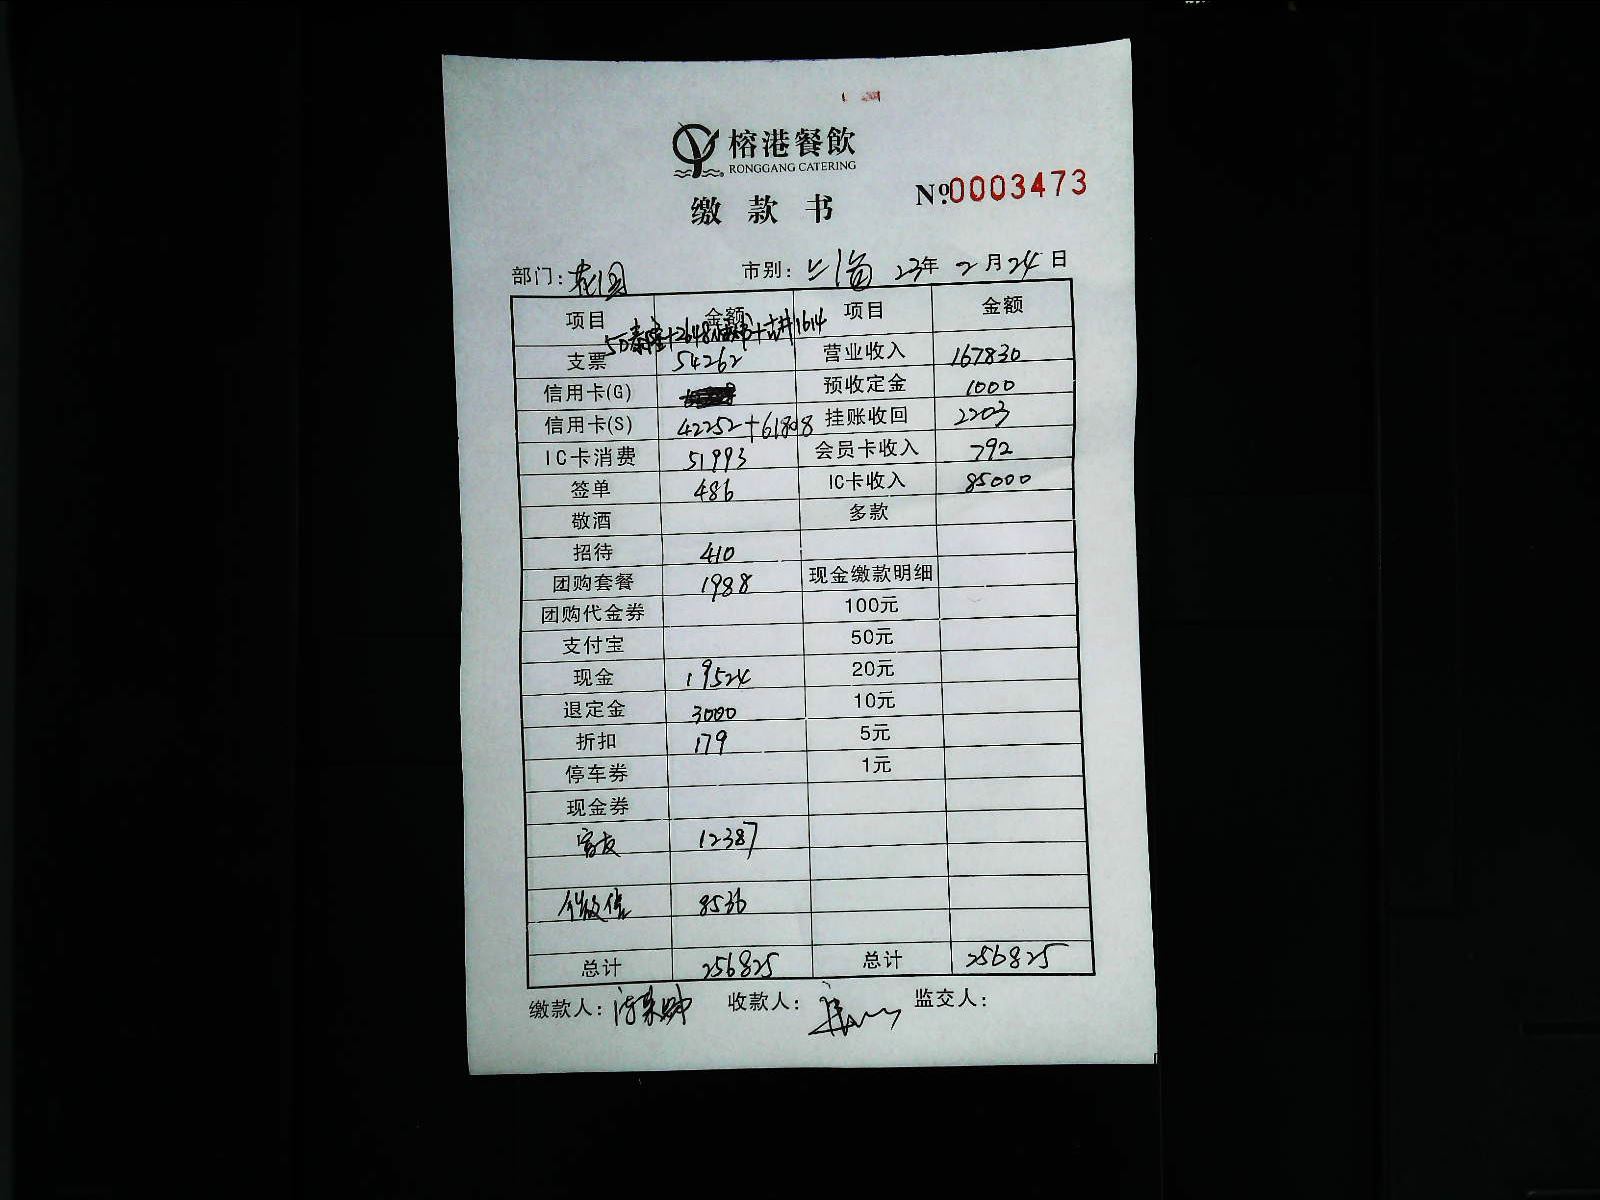 榕港餐飲
RONGGANG CATERING
缴款书
No.0003473
部门:花园 市别:上海 23年2月24日
项目 金额 项目 金额
50泰隆+2648+古井1614
支票 54262 营业收入 167830
信用卡(G) 预收定金 1000
信用卡(S) 42252+61808 挂账收回 2203
IC卡消费 51993 会员卡收入 792
签单 486 IC卡收入 85000
敬酒 多款
招待 410
团购套餐 1988 现金缴款明细
团购代金券 100元
支付宝 50元
现金 19524 20元
退定金 3000 10元
折扣 179 5元
停车券 1元
现金券
12387
微信 8536
总计 256825 总计 256825
缴款人: 收款人: 监交人: